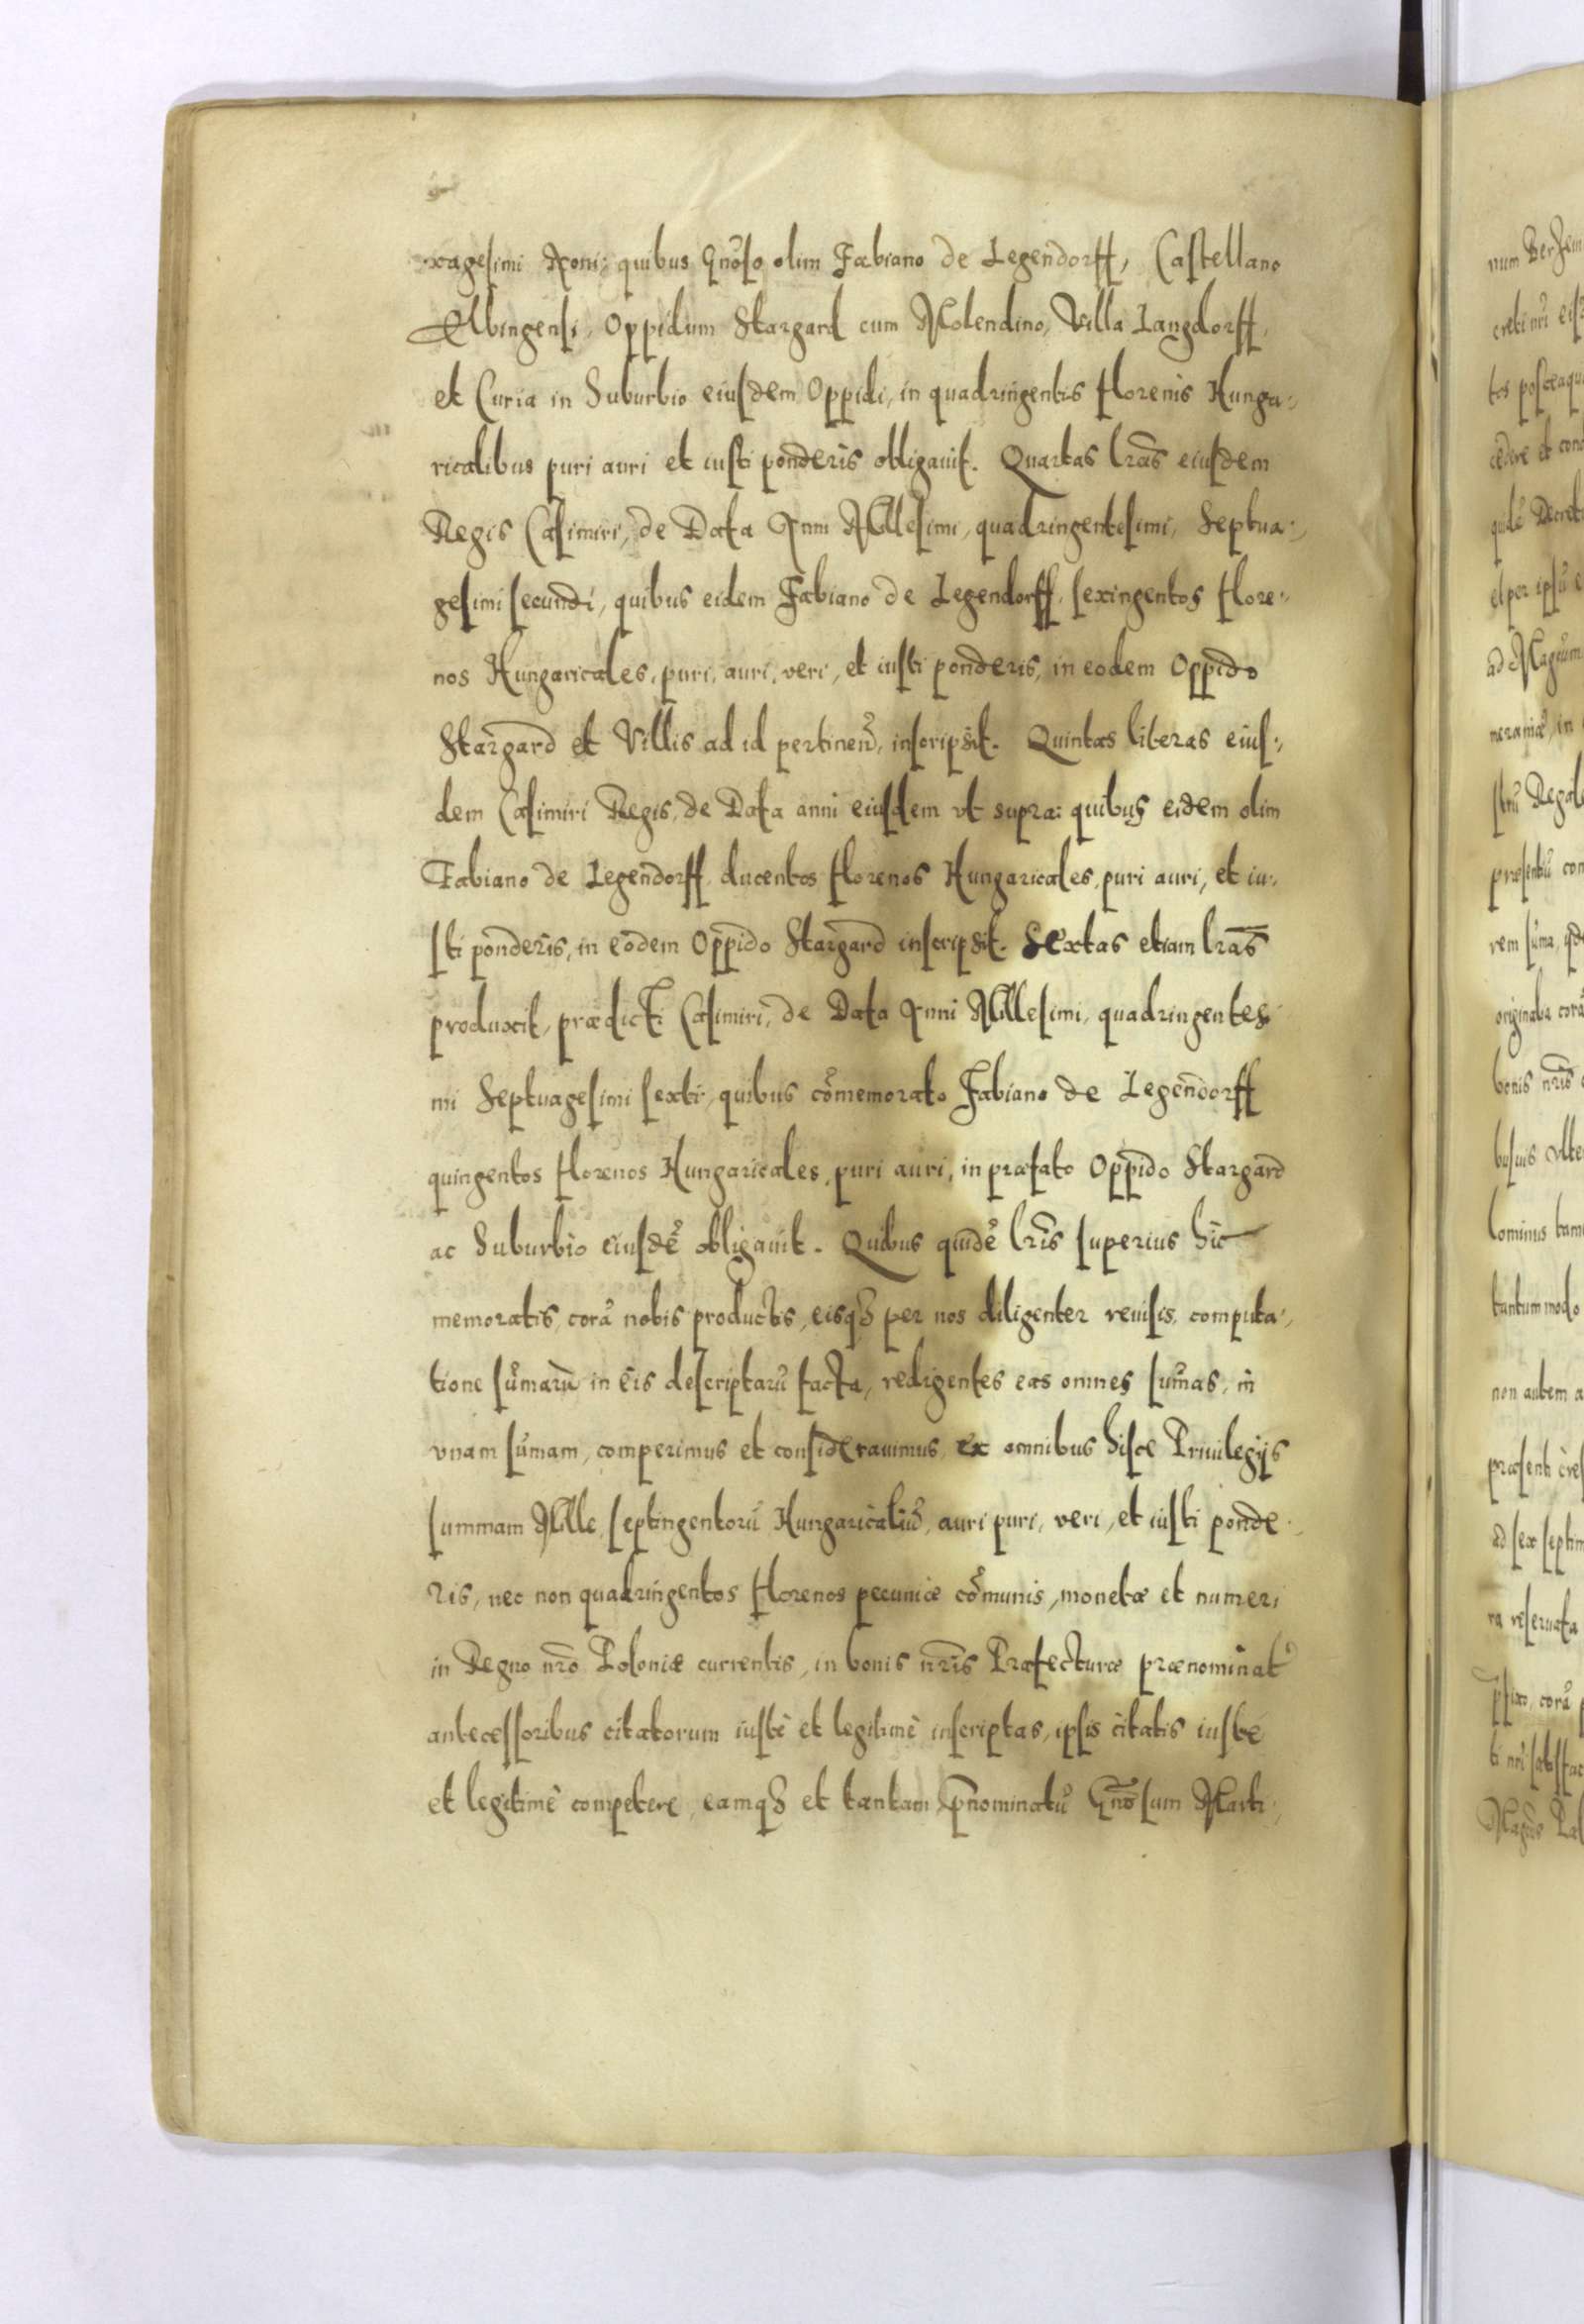 xagesimi Noni: quibus Gnōso olim Fabiano de Legendorff, Castellano
Elbingensi, Oppidum Stargard cum Molendino, Villa Langdorff,
et Curia in Suburbio eiusdem Oppidi, in quadringentis florenis Hunga:
ricalibus puri auri et iusti ponderis obligauit. Quartas lrās eiusdem
Regis Casimiri, de Data Anni Millesimi, quadringentesimi, Septua:
gesimi secundi, quibus eidem Fabiano de Legendorff, sexingentos flore:
nos Hungaricales, puri, auri, veri, et iusti ponderis, in eodem Oppido
Stargard et Villis ad id pertineñ, inscripsit. Quintas literas eius:
dem Casimiri Regis, de Data anni eiusdem vt supra: quibus eidem olim
Fabiano de Legendorff, ducentos florenos Hungaricales, puri auri, et iu:
sti ponderis, in eodem Oppido Stargard inscripsit. Sextas etiam lrās
produxit, prædicti Casimiri, de Data Anni Millesimi, quadringentesi
mi Septuagesimi sexti, quibus cōmemorato Fabiano de Legendorff
quingentos florenos Hungaricales, puri auri, in præfato Oppido Stargard
ac Suburbio eiusdē obligauit. Quibus quidē lrīs superius hic
memoratis, corā nobis productis, eisq3 per nos diligenter reuisis, computa:
tione sūmarū in eis descriptarū facta, redigentes eas omnes sūmas, in
vnam sūmam, comperimus et considerauimus, ex omnibus hisce Priuilegijs
summam Mille, septingentorū Hungaricaliū, auri puri, veri, et iusti ponde:
ris, nec non quadringentos florenos pecuniæ cōmunis, monetæ et numeri
in Regno nrō Poloniæ currentis, in bonis nrīs Præfecturæ prænominat
antecessoribus citatorum iustè et legitimè inscriptas, ipsis citatis iustè
et legitimè competere, eamq3 et tantam p̄nominatū Gnōsum Marti: